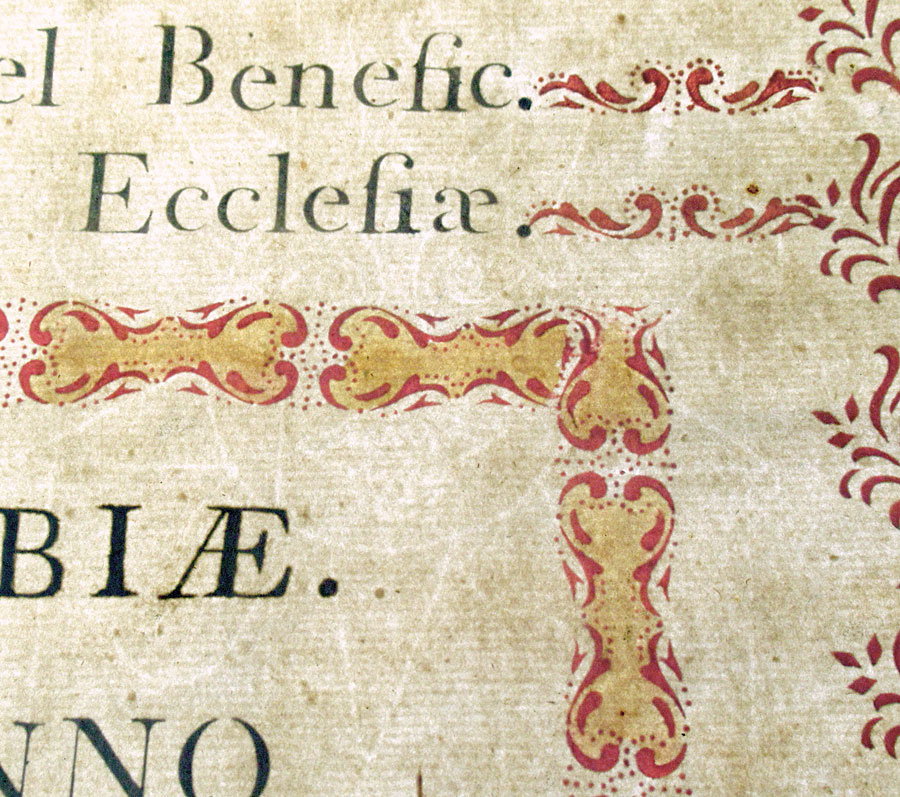 el Benefic.
Eccleſiæ.
BIÆ.
NNO